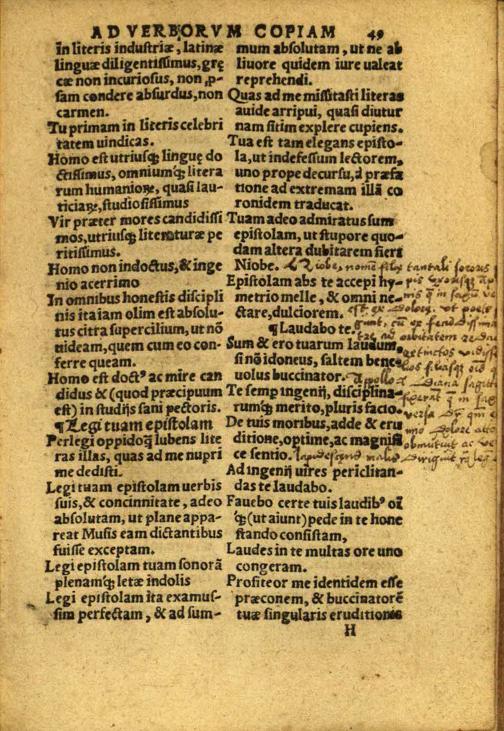 AD VERBORVM COPIAM 49
in literis industriæ, latinæ
linguæ diligentissimus, grę
cæ non incuriosus, non ꝓ-
sam condere absurdus, non
carmen.
Tu primam in literis celebri
tatem uindicas.
Homo est utriusq; linguę do
ctissimus, omniumq; litera
rum humanioꝝ, quasi lau-
ticiaꝝ, studiosissimus
Vir præter mores candidissi
mos, utriusq; literaturæ pe
ritissimus.
Homo non indoctus, & inge
nio acerrimo
In omnibus honestis discipli
nis ita iam olim est absolu-
tus citra supercilium, ut nõ
uideam, quem cum eo con-
ferre queam.
Homo est doctꝰ ac mire can
didus & (quod præcipuum
est) in studijs sani pectoris.
¶ Legi tuam epistolam
Perlegi oppidoq; lubens lite
ras illas, quas ad me nupri
me dedisti.
Legi tuam epistolam uerbis
suis, & concinnitate, adeo
absolutam, ut plane appa-
reat Musis eam dictantibus
fuisse exceptam.
Legi epistolam tuam sonorã
plenamq; letæ indolis
Legi epistolam ita examus-
sim perfectam, & ad sum-
mum absolutam, ut ne ab
liuore quidem iure ualeat
reprehendi.
Quas ad me missitasti literas
auide arripui, quasi diutur
nam sitim explere cupiens.
Tua est tam elegans episto-
la, ut indefessum lectorem,
uno prope decursu, à præfa
tione ad extremam illã co
ronidem traducat.
Tuam adeo admiratus sum
epistolam, ut stupore quo-
dam altera dubitarem fieri
Niobe.
Epistolam abs te accepi hy-
metrio melle, & omni ne-
ctare, dulciorem.
¶ Laudabo te.
Sum & ero tuarum laudum,
si nõ idoneus, saltem bene
uolus buccinator.
Te semꝑ ingenij, disciplina-
rumq; merito, pluris facio.
De tuis moribus, adde & eru
ditione, optime, ac magnifi
ce sentio.
Ad ingenij uires periclitan-
das te laudabo.
Fauebo certe tuis laudibꝰ oĩ
q; (ut aiunt) pede in te hone
stando consistam,
Laudes in te multas ore uno
congeram.
Profiteor me identidem esse
præconem, & buccinatorẽ
tuæ singularis eruditionis
H